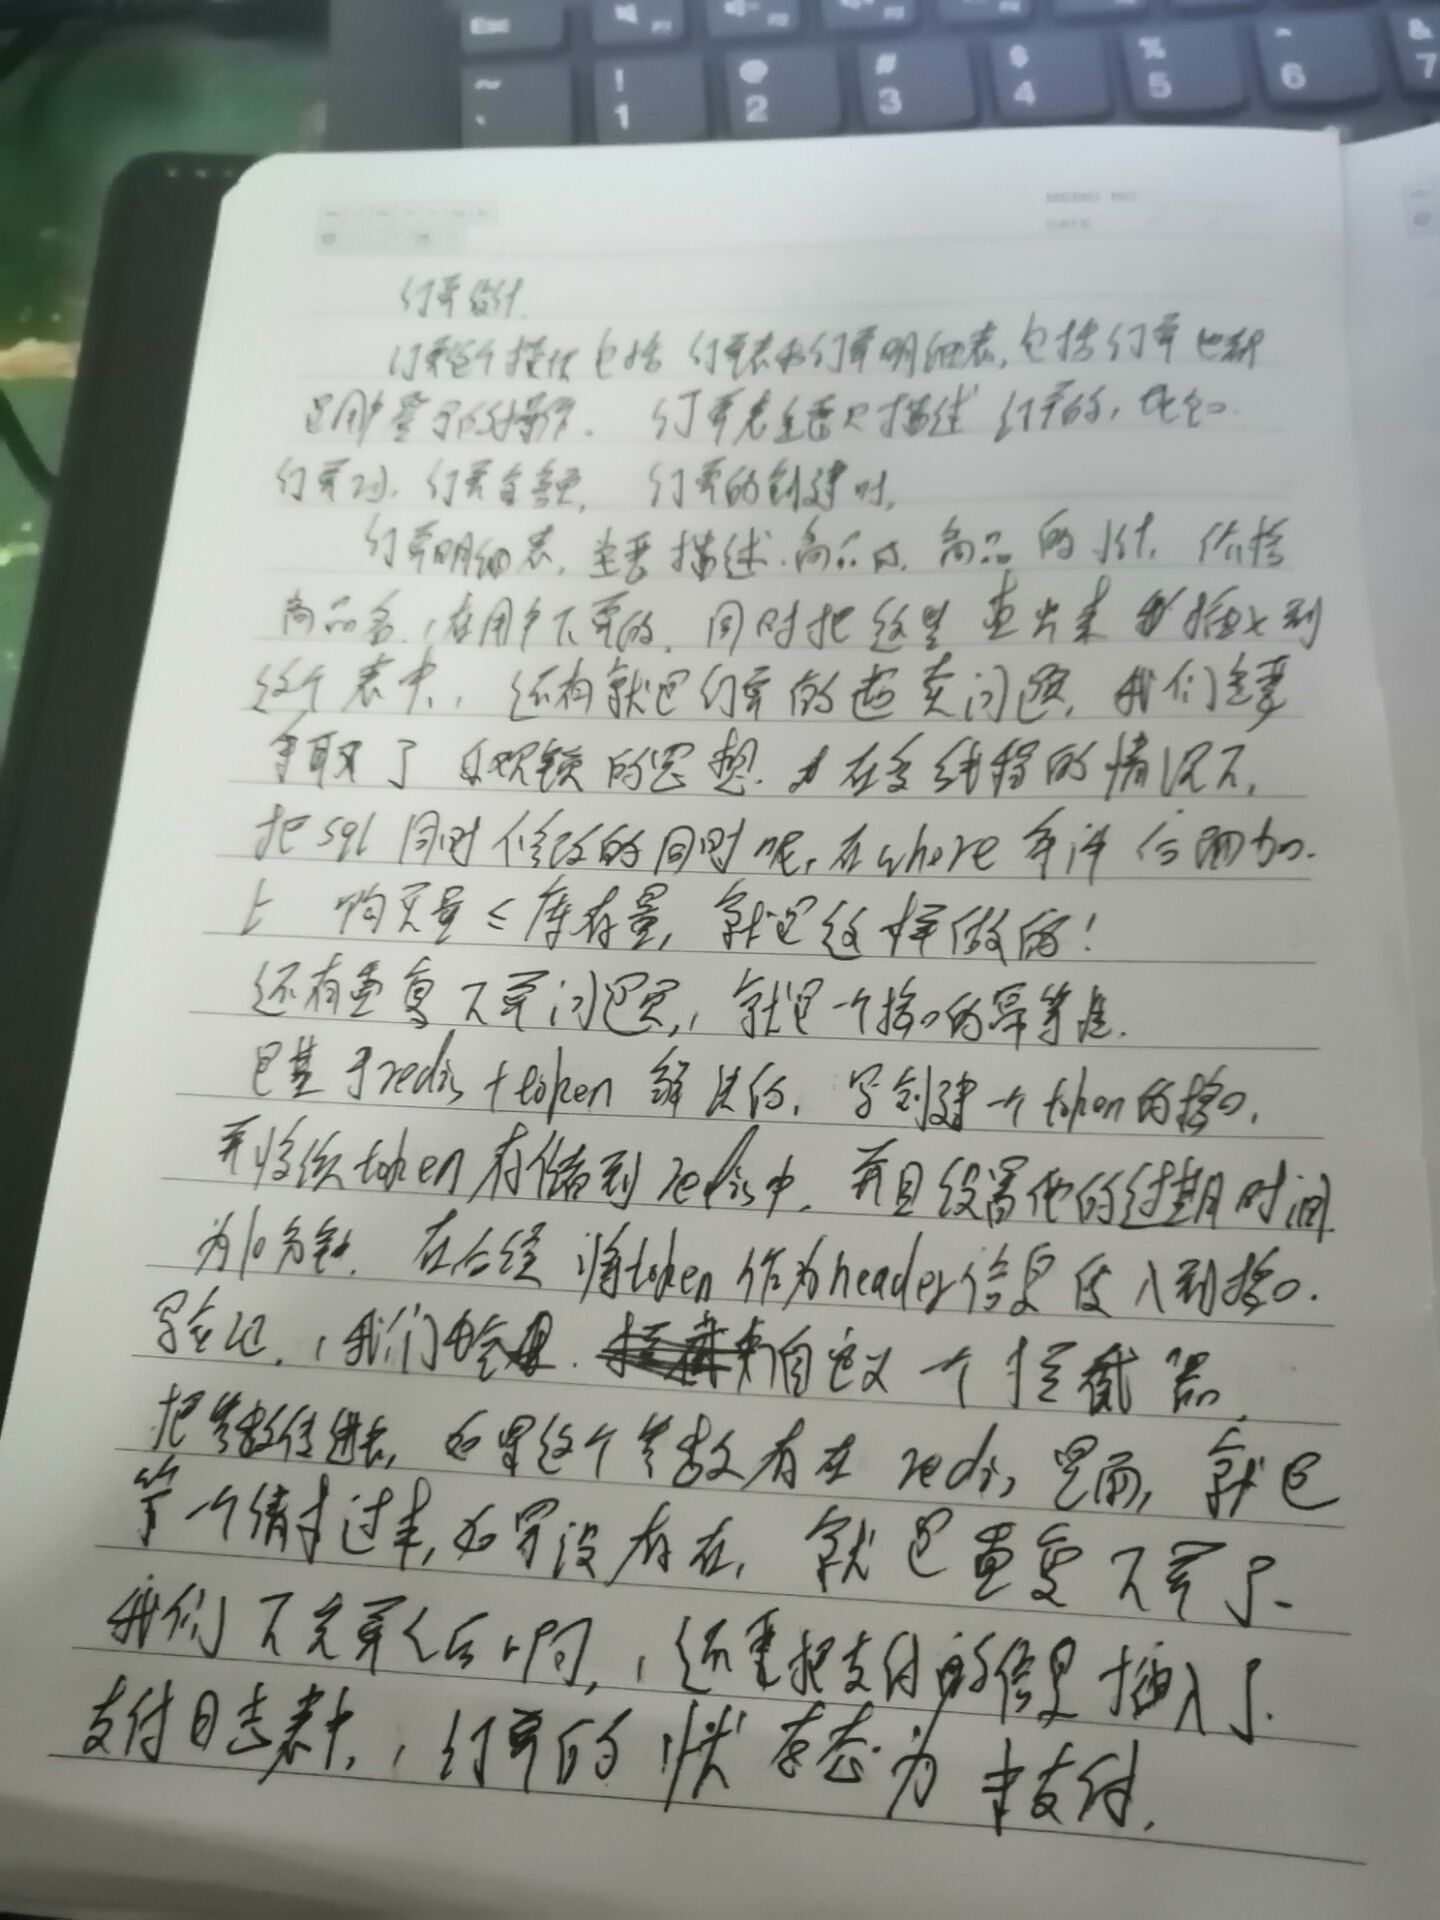 Esc F1 F2 F3
~ ` ! 1 @ 2 # 3 $ 4 % 5 ^ 6 & 7
MEMO NO.
DATE
订单设计
订单整个模块包括 订单表和订单明细表,包括订单
是用户 的操作. 订单表主要只描述 订单的,比如.
订单 , 订单金额, 订单的创建时,
订单明细表, 主要描述.商品的, 商品的 , 价格
商品名,,在用户下单的, 同时把这些 查出来 插入到
这个表中,, 还有就是订单的超卖问题, 我们主要
采取了 乐观锁的思想. 在多线程的情况下,
把sql 同时修改的同时呢,在where 条件后面加.
上 购买量≤库存量, 就是这样做的!
还有重复下单问题,, 就是一个接口的幂等性.
是基于redis+token 解决的, 写创建一个token的接口,
并将该token存储到redis中, 并且设置他的过期时间
为10分钟. 在 将token作为header信息传入到接口.
, 我们 . 自定义一个拦截器,
把参数传进去, 如果这个参数存在 redis 里面, 就是
第一个请求过来,如果没存在, 就是重复下单了.
我们下完单之后啊,, 还要把支付的信息插入了
支付日志表中,, 订单的 状态为 未支付,